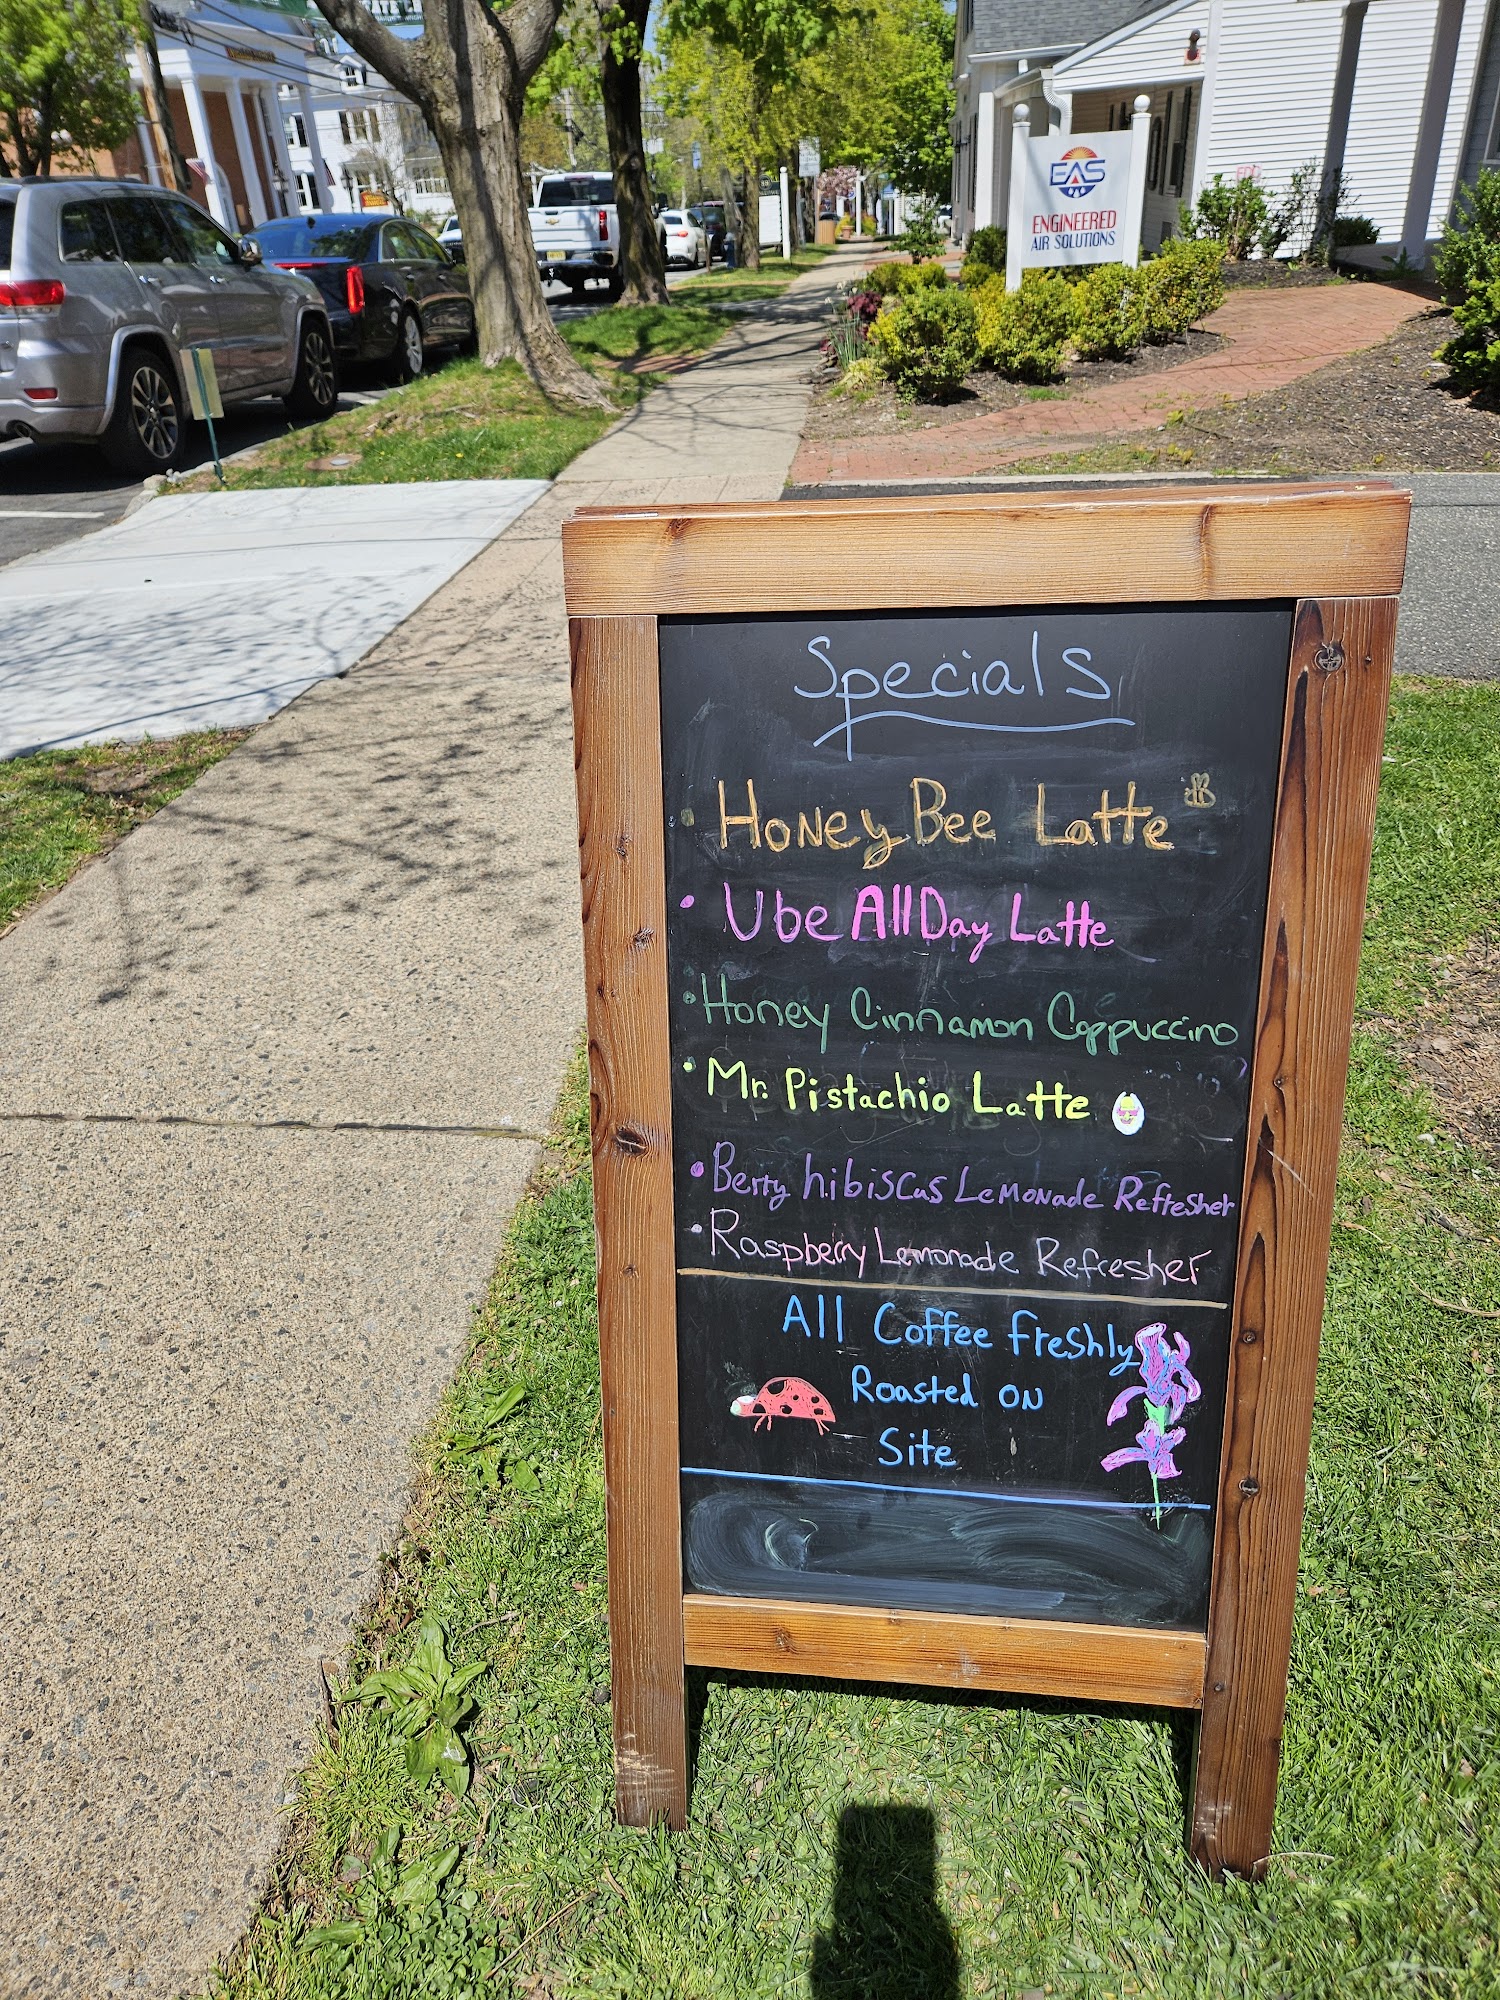 EAS
ENGINEERED
AIR SOLUTIONS
Specials
Honey Bee Latte
• Ube All Day Latte
• Honey Cinnamon Coppuccino
• Mr. Pistachio Latte
• Berry hibiscus Lemonade Refresher
• Raspberry Lemonade Refresher
All Coffee freshly
Roasted on
Site